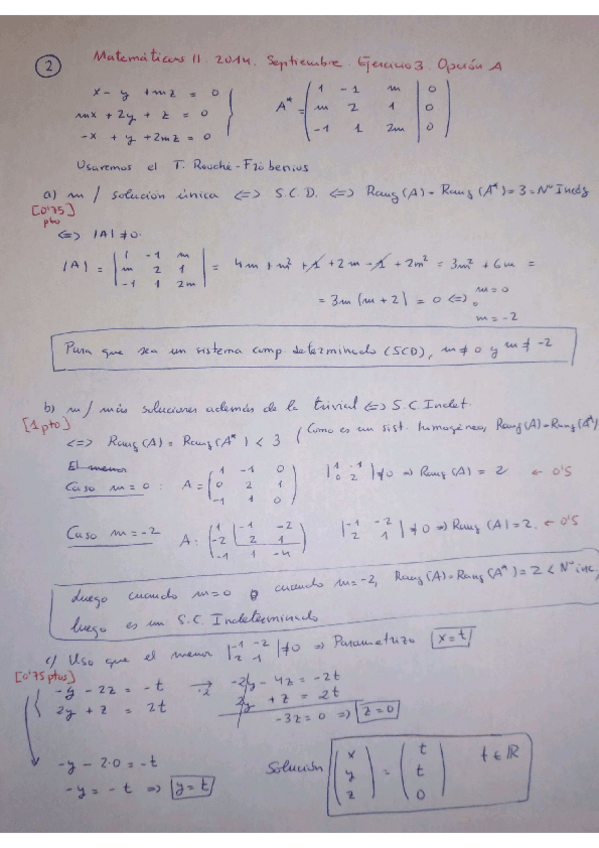 2 Matemáticas II 2014. Septiembre. Ejercicio 3. Opción A
x - y + mz = 0
mx + 2y + z = 0
-x + y + 2mz = 0
A* = ( 1 -1 m | 0
m 2 1 | 0
-1 1 2m | 0 )
Usaremos el T. Rouché-Frobenius
a) m / solución única <=> S.C.D. <=> Rang(A) = Rang(A*) = 3 = Nº Incóg
[0'75] pto
<=> |A| ≠ 0.
|A| = | 1 -1 m
m 2 1
-1 1 2m | = 4m + m² + 1 + 2m - 1 + 2m² = 3m² + 6m =
= 3m (m + 2) = 0 <=> m = 0
o
m = -2
Para que sea un sistema comp. determinado (SCD), m ≠ 0 y m ≠ -2
b) m / más soluciones además de la trivial <=> S.C. Indet.
[1 pto]
<=> Rang(A) = Rang(A*) < 3 (Como es un sist. homogéneo, Rang(A) = Rang(A*)
El menor
Caso m = 0 : A = ( 1 -1 0
0 2 1
-1 1 0 ) | 1 -1
0 2 | ≠ 0 => Rang(A) = 2 ← 0'5
Caso m = -2 A : ( 1 -1 -2
-2 2 1
-1 1 -4 ) | -1 -2
2 1 | ≠ 0 => Rang(A) = 2. ← 0'5
Luego cuando m = 0 o cuando m = -2, Rang(A) = Rang(A*) = 2 < Nº inc,
luego es un S.C. Indeterminado
c) Uso que el menor | -1 -2
2 1 | ≠ 0 => Parametrizo x = t
[0'75 ptos]
-y - 2z = -t → ·2 -2y - 4z = -2t
2y + z = 2t 2y + z = 2t
-3z = 0 => z = 0
-y - 2·0 = -t
-y = -t => y = t
Solución ( x
y
z ) = ( t
t
0 ) t ∈ ℝ